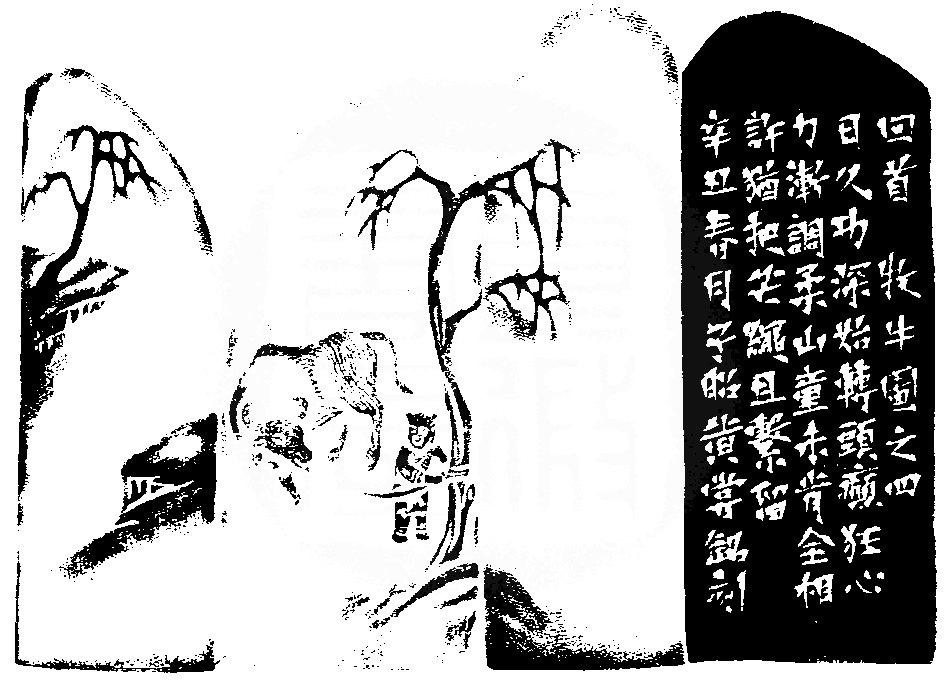 回首 牧牛圖之四
日久功深始轉頭癲狂心
力漸調柔山童未肯全相
許猶把芒繩且繫留
辛丑春月子昭黃嘗銘刻